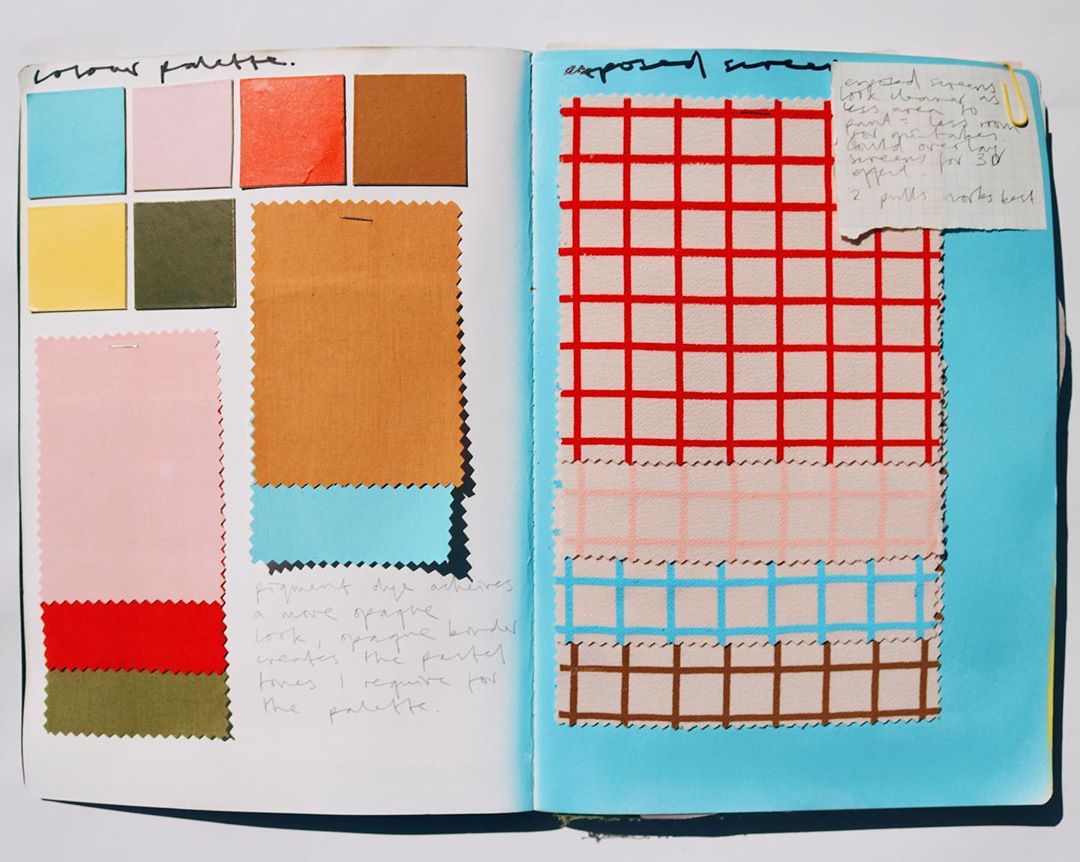 colour palette.
pigment dye acheives
a more opaque
look, opaque border
creates the pastel
tones I require for
the palette.
exposed screen
exposed screens
look cleaner as
less area to
print = less room
for mistakes.
Could overlay
screens for 3D
effect.
2 pulls works best.